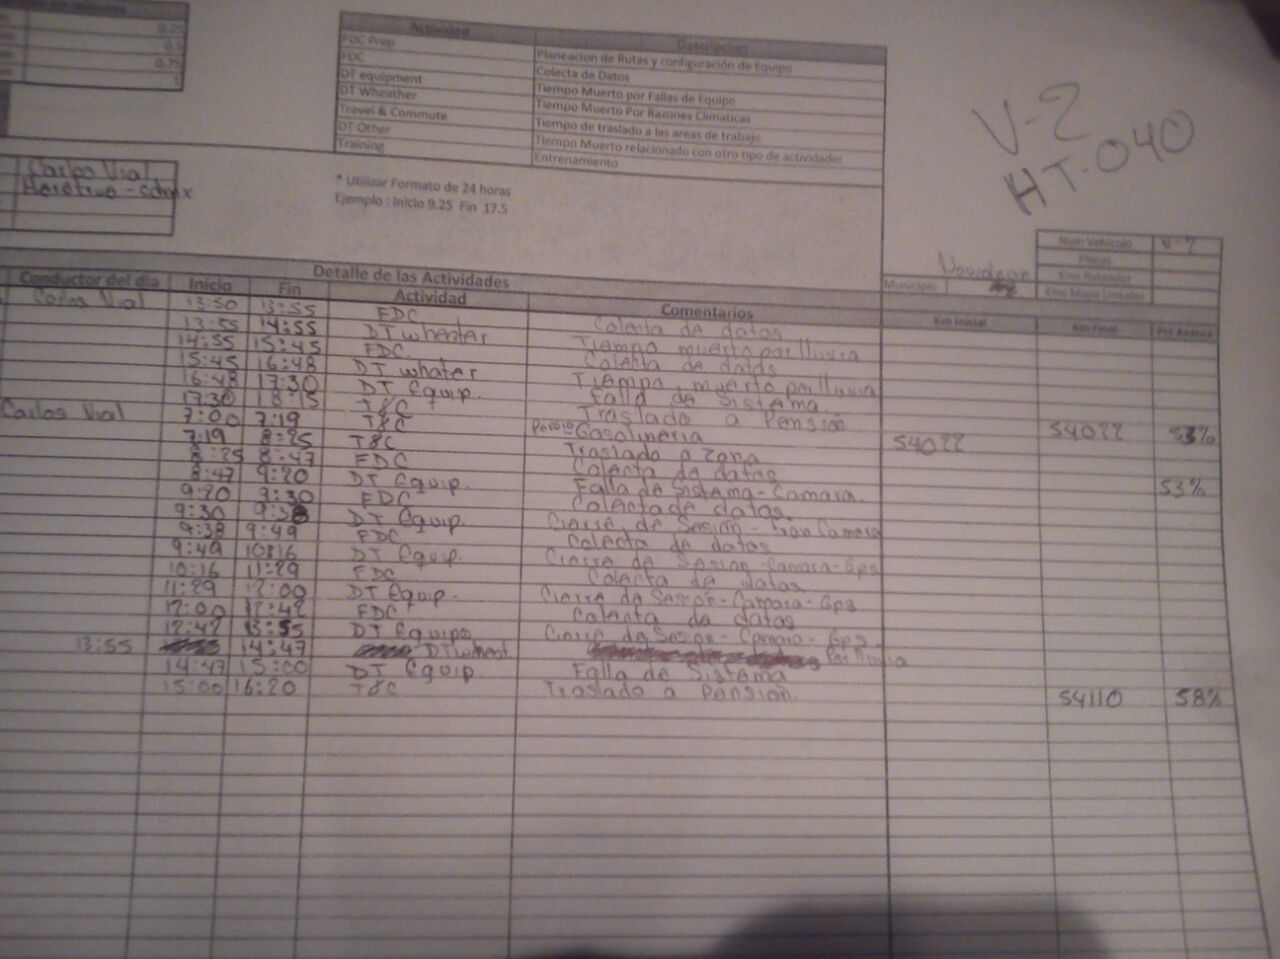 0.25
0.5
0.75
1
Actividad Descripcion
FDC Prep Planeacion de Rutas y configuración de Equipo
FDC Colecta de Datos
DT equipment Tiempo Muerto por Fallas de Equipo
DT Wheather Tiempo Muerto Por Razones Climaticas
Travel & Commute Tiempo de traslado a las areas de trabajo
DT Other Tiempo Muerto relacionado con otro tipo de actividades
Training Entrenamiento
V-2
HT-040
Carlos Vial
* Utilizar Formato de 24 horas
Ejemplo : Inicio 9.25 Fin 17.5
Num Vehiculo V-2
Placas
Kms Ruteador
Municipio Kms Mapa Lineales
Detalle de las Actividades
Conductor del dia Inicio Fin Actividad Comentarios Km Inicial Km Final Pct Avance
Carlos Vial 13:50 13:55 FDC Colecta de datos
13:55 14:55 DT wheater Tiempo muerto por lluvia
14:55 15:45 FDC Colecta de datos
15:45 16:48 DT whater Tiempo muerto por lluvia
16:48 17:30 DT Equip. Falla de Sistema
17:30 18:15 T&C Traslado a Pensión 54022 53%
Carlos Vial 7:00 7:19 T&C Gasolineria 54022
7:19 8:25 T&C Traslado a Zona
8:25 8:47 FDC Colecta de datos 53%
8:47 9:20 DT Equip. Falla de Sistema-Camara
9:20 9:30 FDC Colecta de datos
9:30 9:38 DT Equip. Cierre de Sesion - Camara
9:38 9:49 FDC Colecta de datos
9:49 10:16 DT Equip. Cierre de Sesion-Camara-Gps
10:16 11:29 FDC Colecta de datos
11:29 12:00 DT Equip. Cierre de Sesión-Camara-Gps
12:00 12:42 FDC Colecta de datos
12:42 13:55 DT Equipo Cierre de Sesion-Camara-Gps
13:55 14:47 DT wheat. Por lluvia
14:47 15:00 DT Equip. Falla de Sistema
15:00 16:20 T&C Traslado a Pensión. 54110 58%